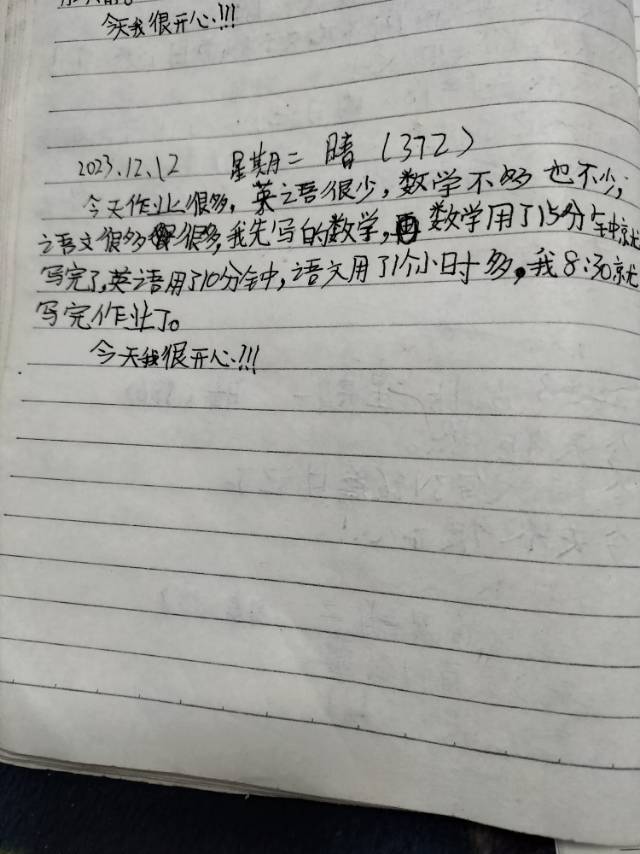 今天我很开心!!!
2023.12.12 星期二 晴 (372)
今天作业很多,英语很少,数学不多也不少,
语文很多很多,我先写的数学,数学用了15分钟就
写完了,英语用了10分钟,语文用了1个小时多,我8:30就
写完作业了。
今天我很开心!!!